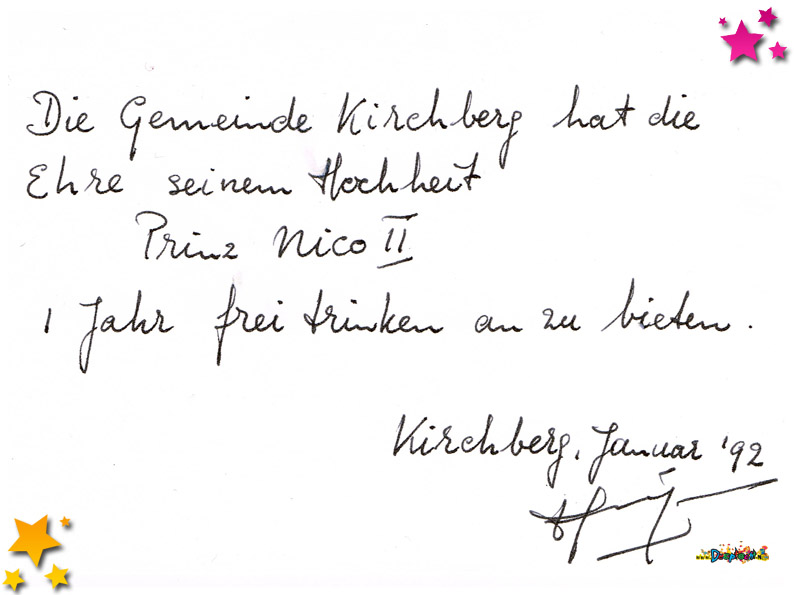 Die Gemeinde Kirchberg hat die
Ehre seinem Hochheit
Prinz Nico II
1 Jahr frei trinken an zu bieten.
Kirchberg, Januar '92